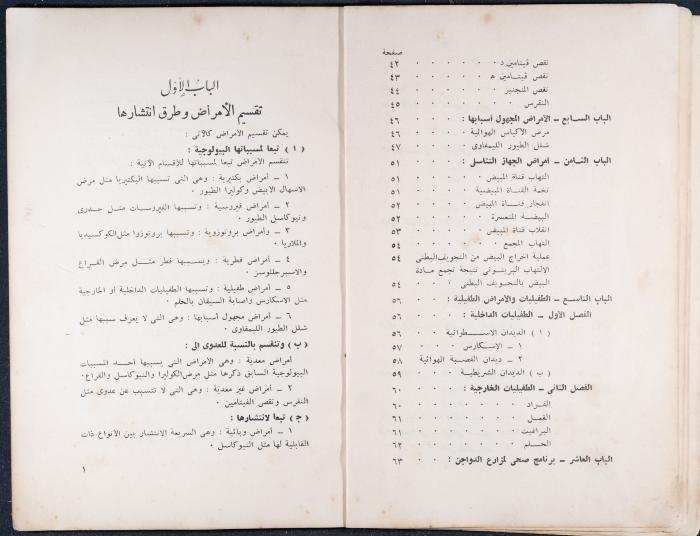 صفحة
نقص ڤيتامين د ٤٢
نقص ڤيتامين ه ٤٣
نقص المنجنيز ٤٤
النقرس ٤٥
الباب السابع ــ الأمراض المجهول أسبابها : ٤٦
مرض الأكياس الهوائية ٤٦
شلل الطيور الليمفاوى ٤٧
الباب الثامن ــ أمراض الجهاز التناسلى : ٥١
التهاب قناة المبيض ٥١
تخمة القناة المبيضية ٥١
انفجار قناة المبيض ٥٢
البيضة المتعسرة ٥٢
انقلاب قناة المبيض ٥٣
التهاب المجمع ٥٤
عملية اخراج البيض من التجويف البطنى ٥٤
الالتهاب البريتونى نتيجة تجمع مادة
البيض بالتجويف البطنى ٥٤
الباب التاسع ــ الطفيليات والأمراض الطفيلية : ٥٦
الفصل الأول ــ الطفيليات الداخلية :
( ا ) الديدان الاسطوانية ٥٦
١ ــ الاسكارس ٥٧
٢ ــ ديدان القصبة الهوائية ٥٨
( ب ) الديدان الشريطية ٥٩
الفصل الثانى ــ الطفيليات الخارجية : ٦٠
القراد ٦٠
القمل ٦١
البراغيث ٦١
الحلم ٦٢
الباب العاشر ــ برنامج صحى لمزارع الدواجن : ٦٣
الباب الأول
تقسيم الأمراض وطرق انتشارها
يمكن تقسيم الأمراض كالآتى :
( ١ ) تبعا لمسبباتها البيولوجية :
تنقسم الأمراض تبعا لمسبباتها للأقسام الآتية :
١ ــ أمراض بكتيرية : وهى التى تسببها البكتيريا مثل مرض
الاسهال الأبيض وكوليرا الطيور .
٢ ــ أمراض فيروسية : وتسببها الفيروسات مثل جدرى
ونيوكاسل الطيور .
٣ ــ وأمراض بروتوزوية : وتسببها بروتوزوا مثل الكوكسيديا
والملاريا .
٤ ــ أمراض فطرية : ويسببها فطر مثل مرض القراع
والاسبرجلوسز .
٥ ــ أمراض طفيلية : وتسببها الطفيليات الداخلية أو الخارجية
مثل الاسكارس واصابة السيقان بالحلم .
٦ ــ أمراض مجهول أسبابها : وهى التى لا يعرف سببها مثل
شلل الطيور الليمفاوى .
( ب ) وتنقسم بالنسبة للعدوى الى :
أمراض معدية : وهى الأمراض التى يسببها أحد المسببات
البيولوجية السابق ذكرها مثل مرض الكوليرا والنيوكاسل والقراع .
٢ ــ أمراض غير معدية : وهى التى لا تتسبب عن عدوى مثل
النقرس ونقص الفيتامين .
( ج ) تبعا لانتشارها :
١ ــ أمراض وبائية : وهى السريعة الانتشار بين الأنواع ذات
القابلية لها مثل النيوكاسل .
١